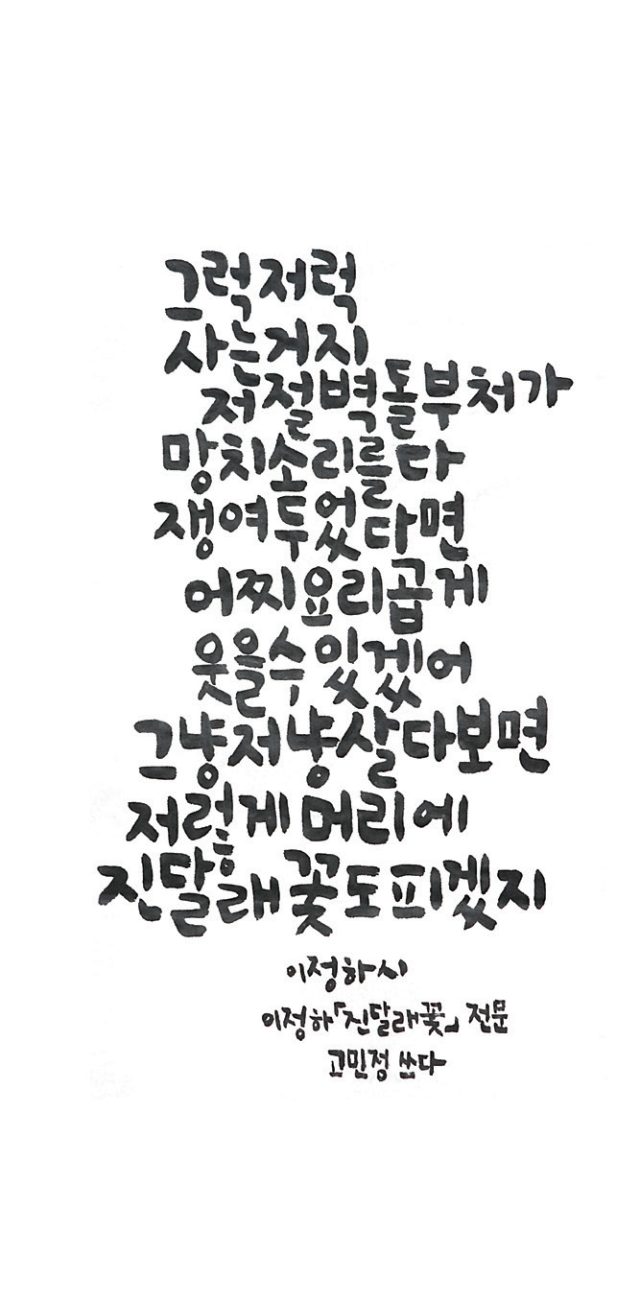 그럭저럭
사는거지
저절벽돌부처가
망치소리를다
쟁여두었다면
어찌요리곱게
웃을수있겠어
그냥저냥살다보면
저렇게머리에
진달래꽃도피겠지
이정하시
이정하「진달래꽃」 전문
고민정 쓰다